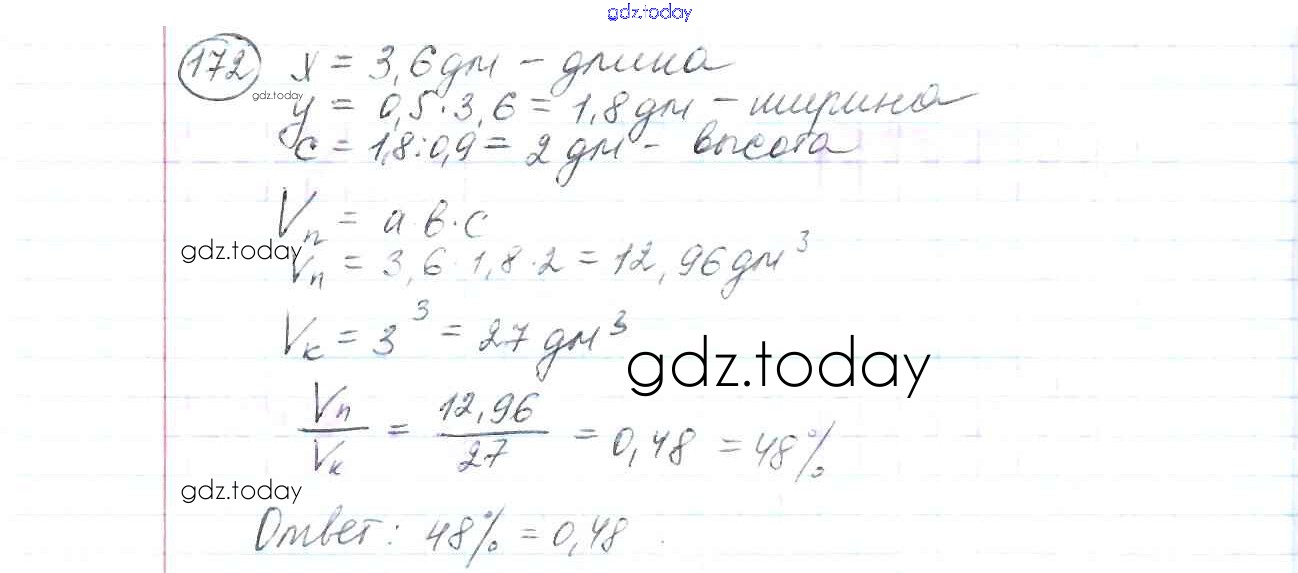 gdz.today
172 x = 3,6 дм - длина
gdz.today
y = 0,5 · 3,6 = 1,8 дм - ширина
c = 1,8 : 0,9 = 2 дм - высота
Vп = a · в · c
gdz.today
Vп = 3,6 · 1,8 · 2 = 12,96 дм³
Vк = 3³ = 27 дм³
gdz.today
Vп/Vк = 12,96/27 = 0,48 = 48%
gdz.today
Ответ: 48% = 0,48.